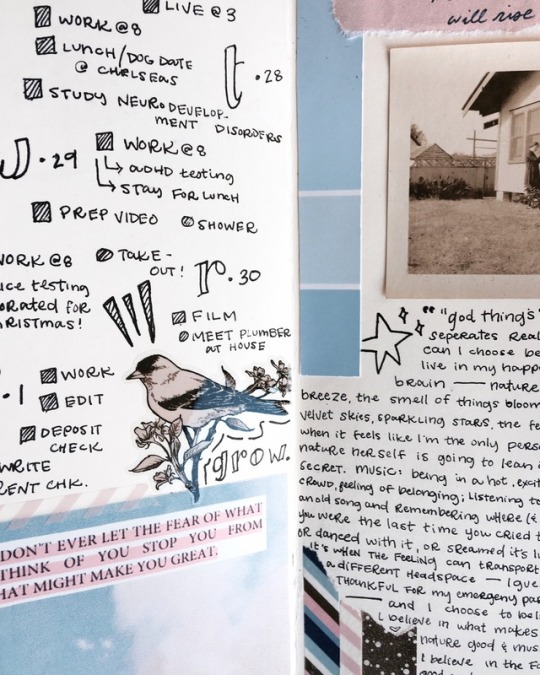 LIVE @ 3
WORK @ 8
LUNCH/DOG DATE
@ CHELSEAS
t • 28
STUDY NEURODEVELOP-
MENT DISORDERS
• 29
WORK @ 8
ADHD testing
STAY FOR LUNCH
PREP VIDEO
SHOWER
WORK @ 8
TAKE-
OUT!
testing
FOR
r • 30
FILM
MEET PLUMBER
AT HOUSE
• 1
WORK
EDIT
DEPOSIT
CHECK
WRITE
CHK.
grow.
DON'T EVER LET THE FEAR OF WHAT
THINK OF YOU STOP YOU FROM
MIGHT MAKE YOU GREAT.
will rise
"god things"
seperates
can I choose
live in my
brain — nature
breeze, the smell of things
velvet skies, sparkling stars, the
when it feels like I'm the only
nature herself is going to lean
secret. music: being in a hot,
crowd, feeling of belonging; listening
an old song and remembering where
you were the last time you cried
or danced with it, or screamed
it's when the feeling can
a different headspace —
THANKFUL FOR my
— and I choose to
I believe in what makes
nature good & 
I believe in the